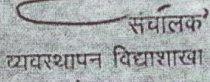 संचालक
व्यवस्थापन विद्याशाखा